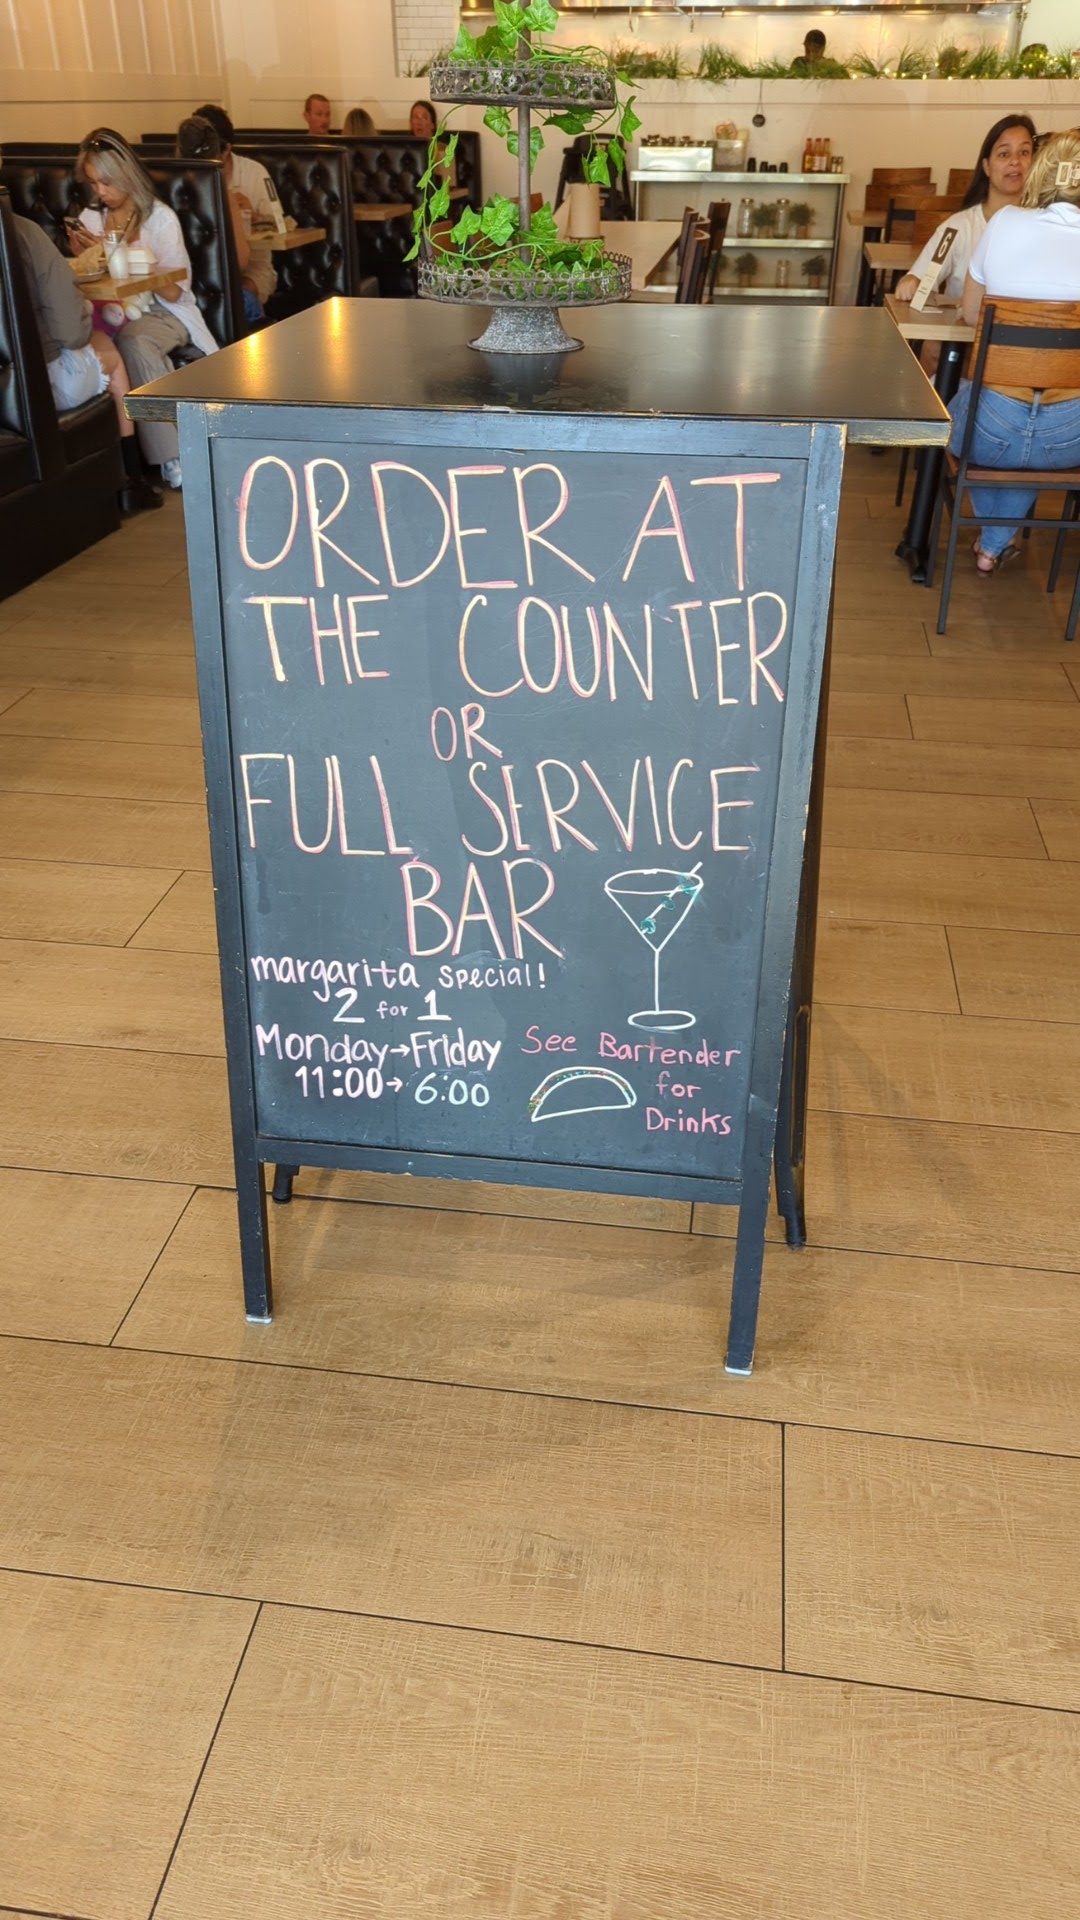 ORDER AT
THE COUNTER
OR
FULL SERVICE
BAR
margarita special!
2 for 1
Monday→Friday
11:00→6:00
See Bartender
for
Drinks
6